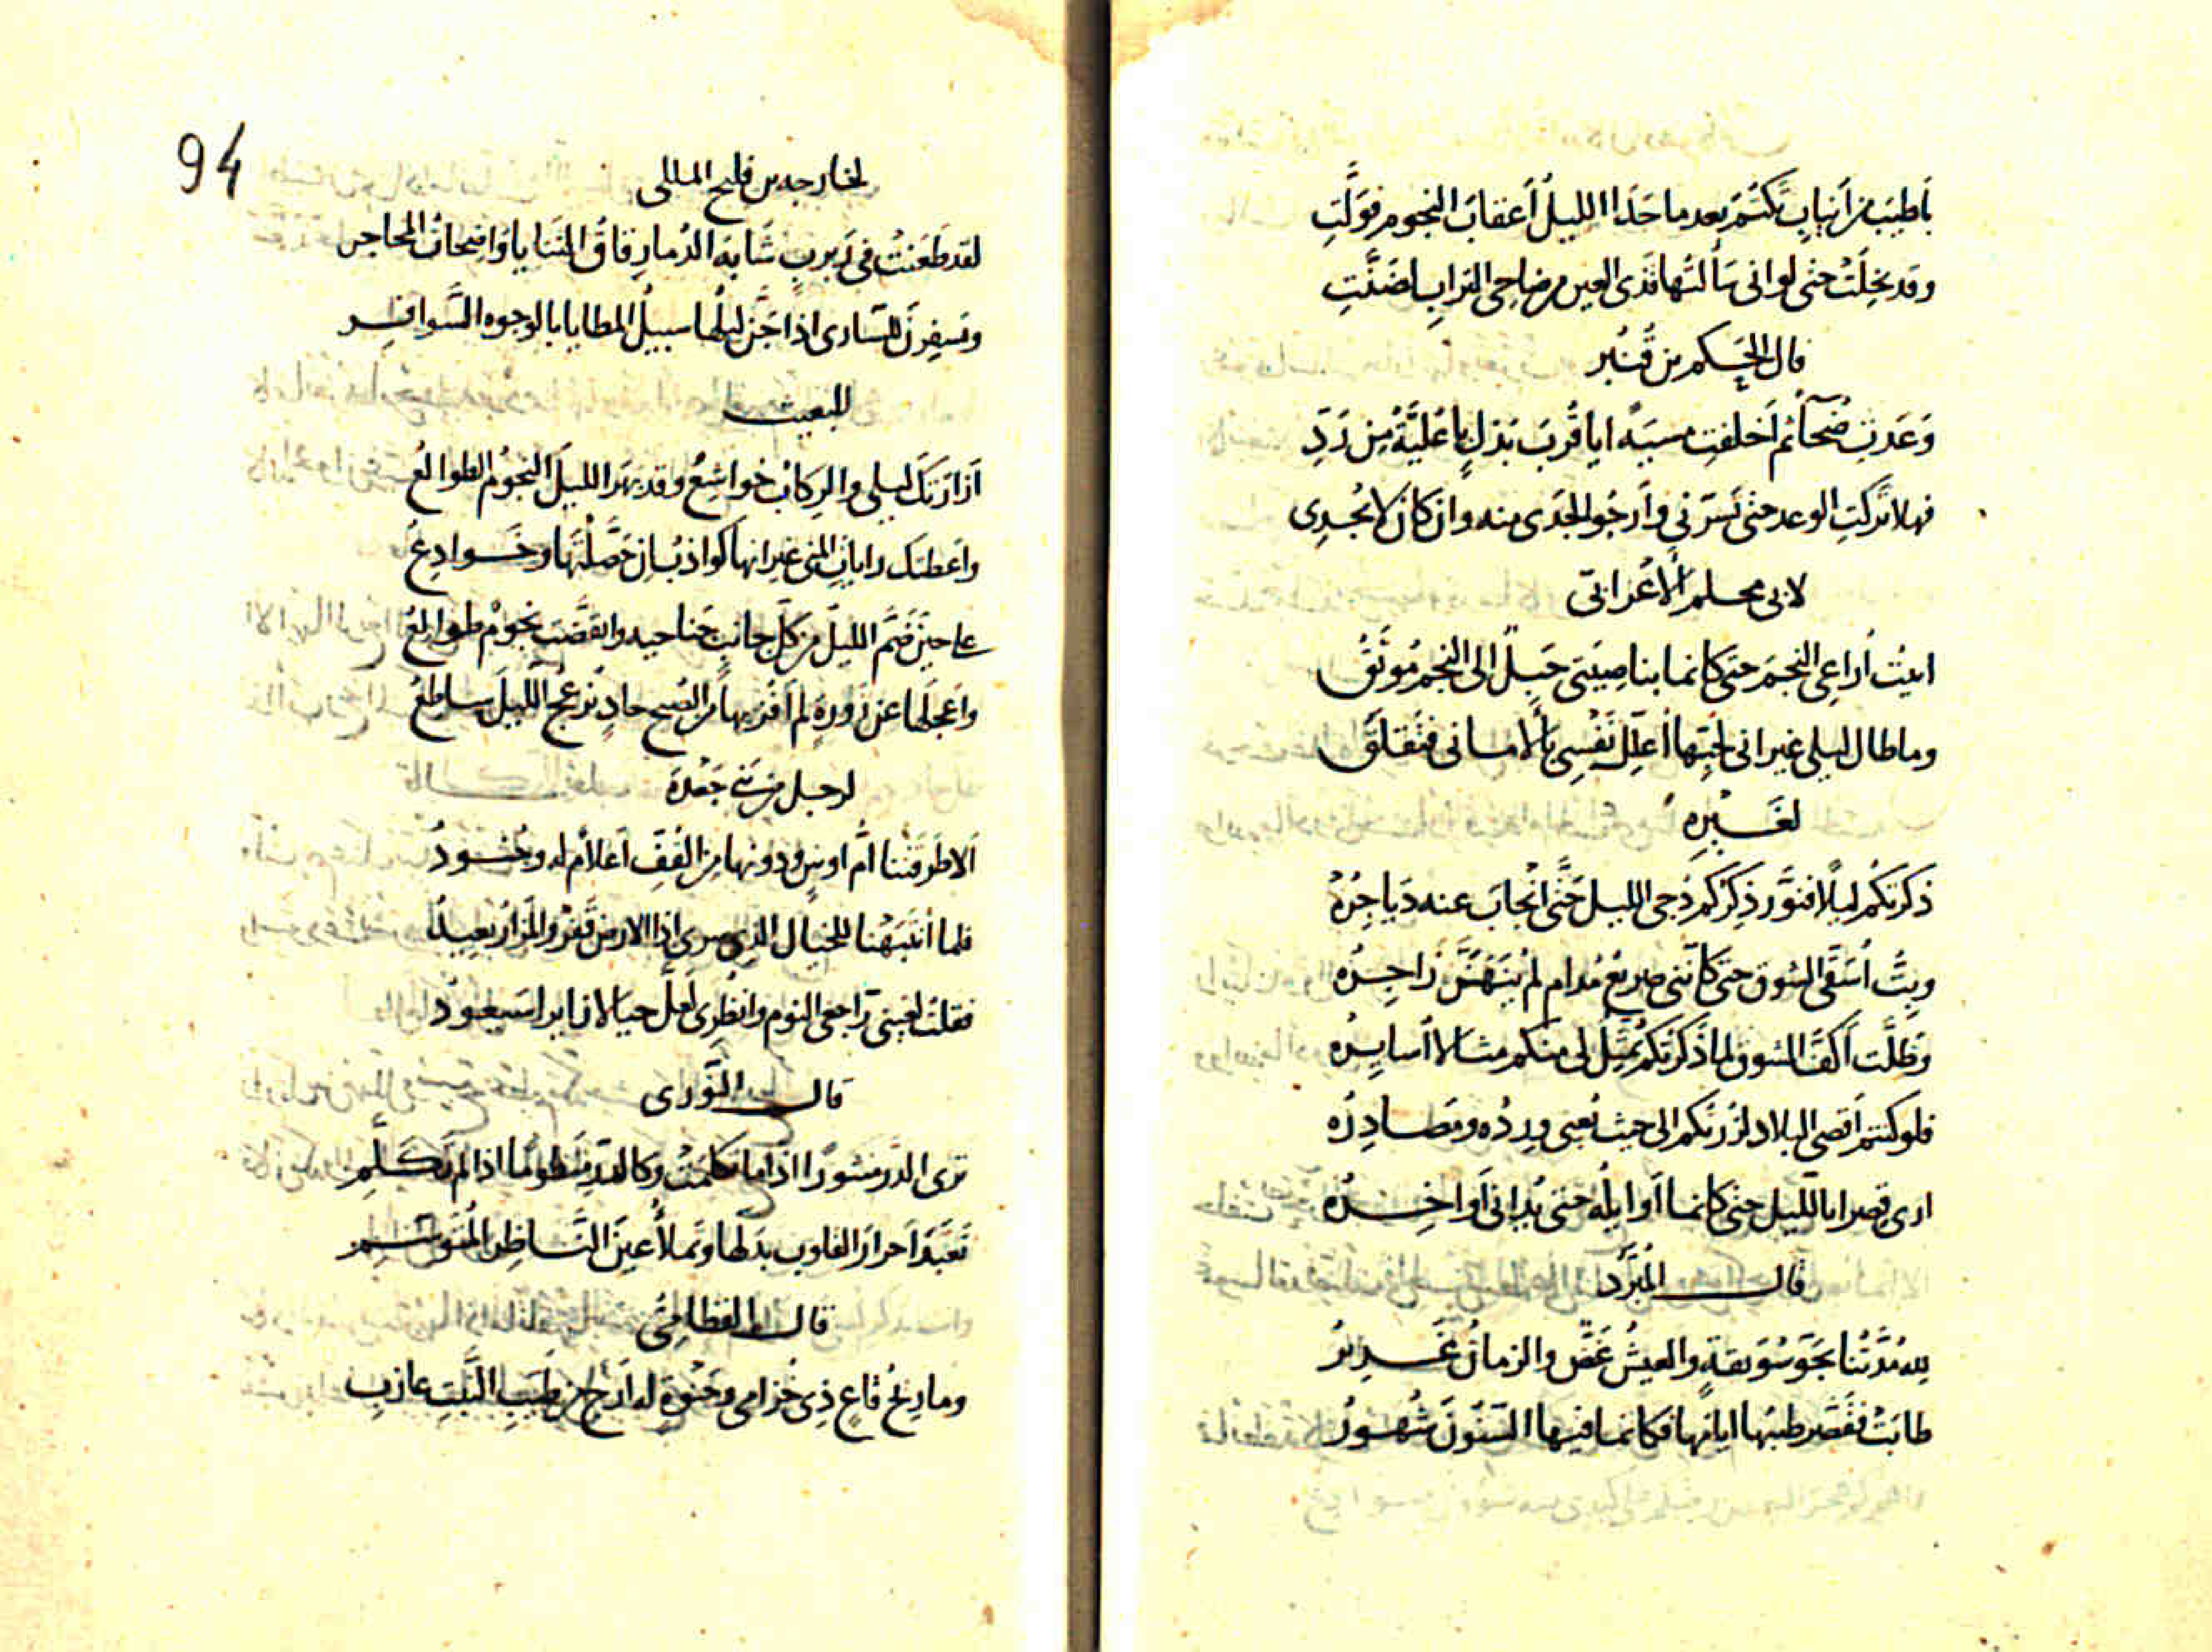 بأطيب من أنياب تكتم بعد ما حدا الليل أعقاب النجوم فولّت
وقد بخلت حتى لو انى سألتها قذى العين من ضاحى التراب لضنّت
قال الحكم بن قنبر
وعدت ثم أخلفت ايا قرب بذل يا عليّة من ردّ
فهلا تركت الوعد حتى تسرّني وأرجو الجدى منه وان كان لا يجدى
لابى محلم الأعرابى
ابيت أراعي النجم حتى كانما بناصيتى حبل الى النجم موثق
وما طال ليلى غير انى أعلل نفسي بالامانى فتقلق
لغيره
ذكرتكم ليلًا فنوّر ذكركم دجى الليل حتّى انجاب عنه دياجره
وبتّ أسقى الشوق حتى كأننى صريع مدام لم ينهنه زاجره
وظلّت أكفّ الشوق لما ذكرتكم تمثل لى منكم مثالا أسايره
فلو كنتم أقصى البلاد لزرتكم الى حيث ورده ومصادره
ارى قصرا بالليل حتى كانما أوايله حتى تدانى أواخره
قال المبرّد
لله مدّتنا بجوّ سويقة والعيش غضّ والزمان غرير
طابت فقصّر طيبها ايامها فكانما فيها السنون شهور
94
لخارجه بن فليح المللى
لقد طعنت فى ربرب شابه الدما رقاق الثنايا واضحات المحاجر
وتسفرن للسّارى اذا جنّ ليلها سبيل المطايا بالوجوه السّوافر
للبعيث
أزارتك ليلى والركاب خواشع وقد بهر الليل النجوم الطوالع
واعطتك رايات المنى غير انها كواذب ان حصّلتها وخوادع
على حين ضمّ الليل من كل جانب جناحيه وانقضّت نجوم طوالع
واعجلها عن زورة لم أفز بها من الصبح حاد يزعج الليل ساطع
لرجل من بنى جعدة
ألا طرقتنا أمّ اوس ودونها من القفّ أعلام له
فلما انتبهنا للخيال الذى سرى اذا الارض قفر والمزار بعيد
فقلت لعينى راجعى النوم وانظرى لعلّ خيالا زايرا سيعود
قال الثّورى
ترى الدّر منثورًا اذا ما تكلمت وكالدرّ منظومًا اذا لم تكلّم
تعبّد أحرار القلوب بدلها وتملأ عين النّاظر المتوسّم
قال القطامىّ
وما ريح قاع ذى خزامى وحنوة له أرج من طيب النّبت عازب